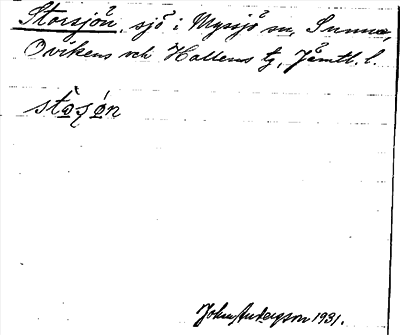 Storsjön, sjö i Myssjö sn, Sunne,
Ovikens och Hallens tg, Jämtl. l.
stòsjǿn
John Anderson 1931.